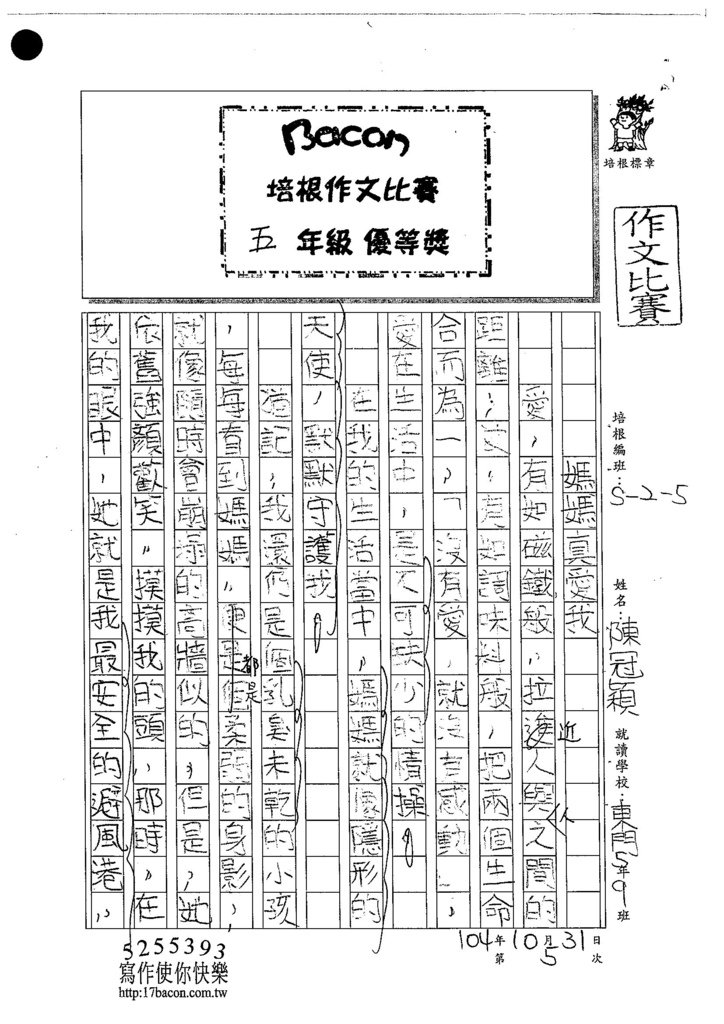 Bacon
培根作文比賽
五年級優等獎
培根標章
作文比賽
培根編班：S-2-5
姓名：陳冠穎
就讀學校：東門5年9班
媽媽真愛我
愛，有如磁鐵般，拉進近人與人之間的
距離；愛，有如調味料般，把兩個生命
合而為一，「沒有愛，就沒有感動，
愛在生活中，是不可缺少的情操。
在我的生活當中，媽媽就像隱形的
天使，默默守護我。
猶記，我還只是個乳臭未乾的小孩
，每每看到媽媽，便是都是個柔弱的身影，
就像頓時會崩塌的高牆似的，但是，她
依舊強顏歡笑，摸摸我的頭，那時，在
我的眼中，她就是我最安全的避風港，
104年10月31日
第5次
5255393
寫作使你快樂
http:17bacon.com.tw